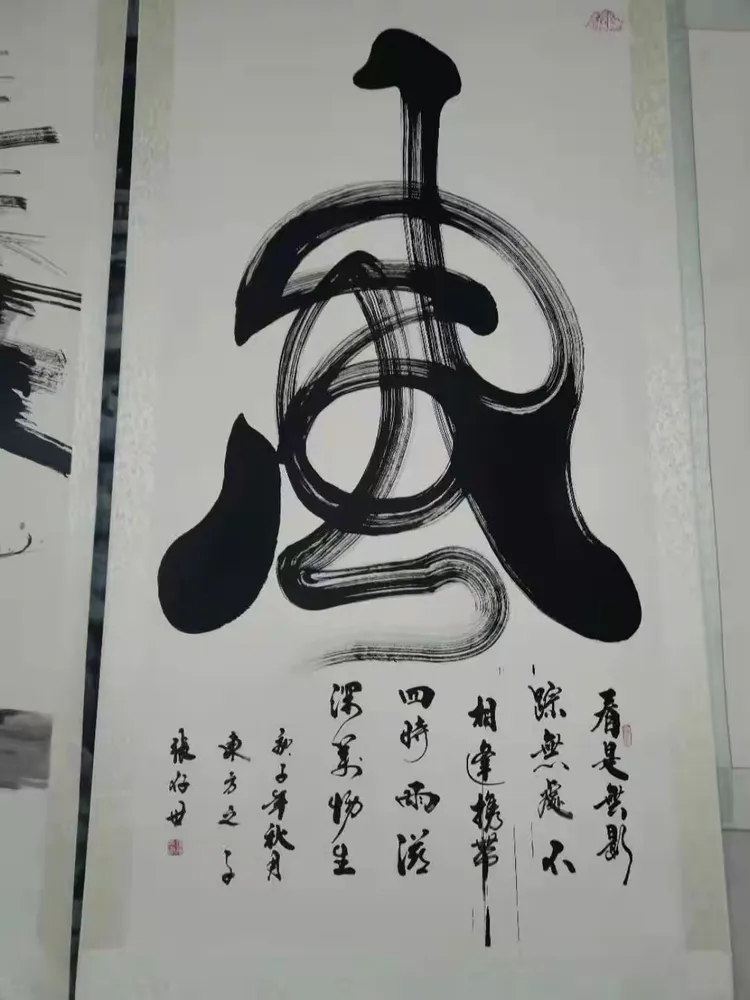 風
看是無影
踪無處不
相逢携帶
四時雨滋
深萬物生
庚子年秋月
東方之子
張